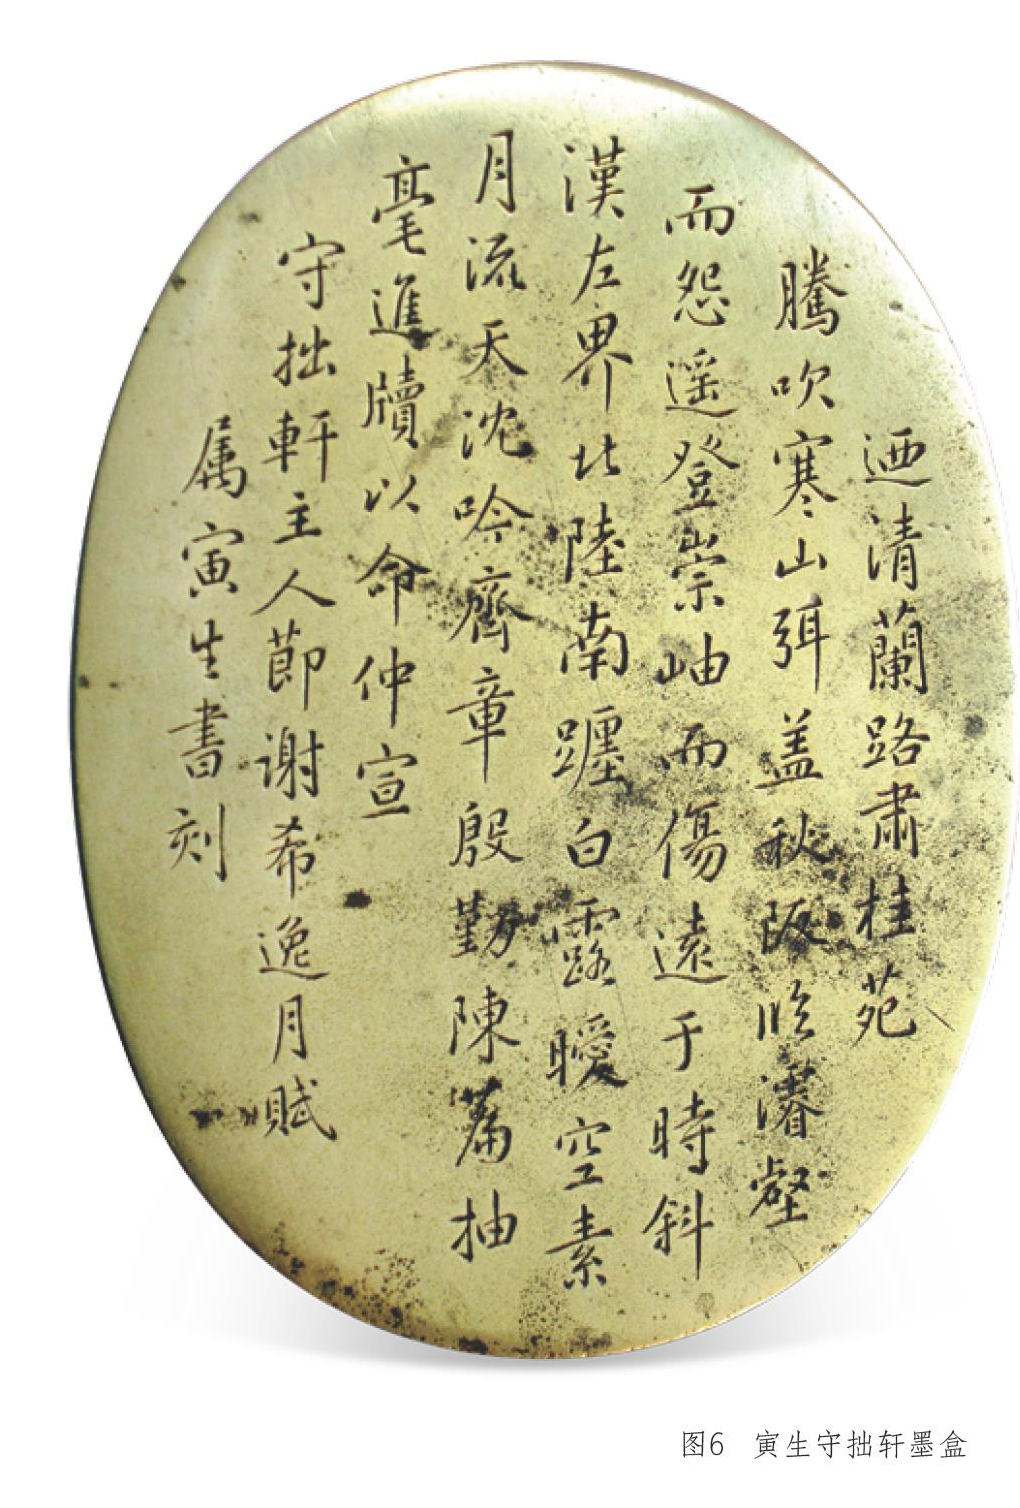 迺清蘭路肅桂苑
騰吹寒山弭盖秋阪臨濬壑
而怨遥登崇岫而傷遠于時斜
漢左界北陸南躔白露曖空素
月流天沈吟齊章殷勤陳篇抽
毫進牘以命仲宣
守拙軒主人節謝希逸月賦
属寅生書刻
图6 寅生守拙轩墨盒